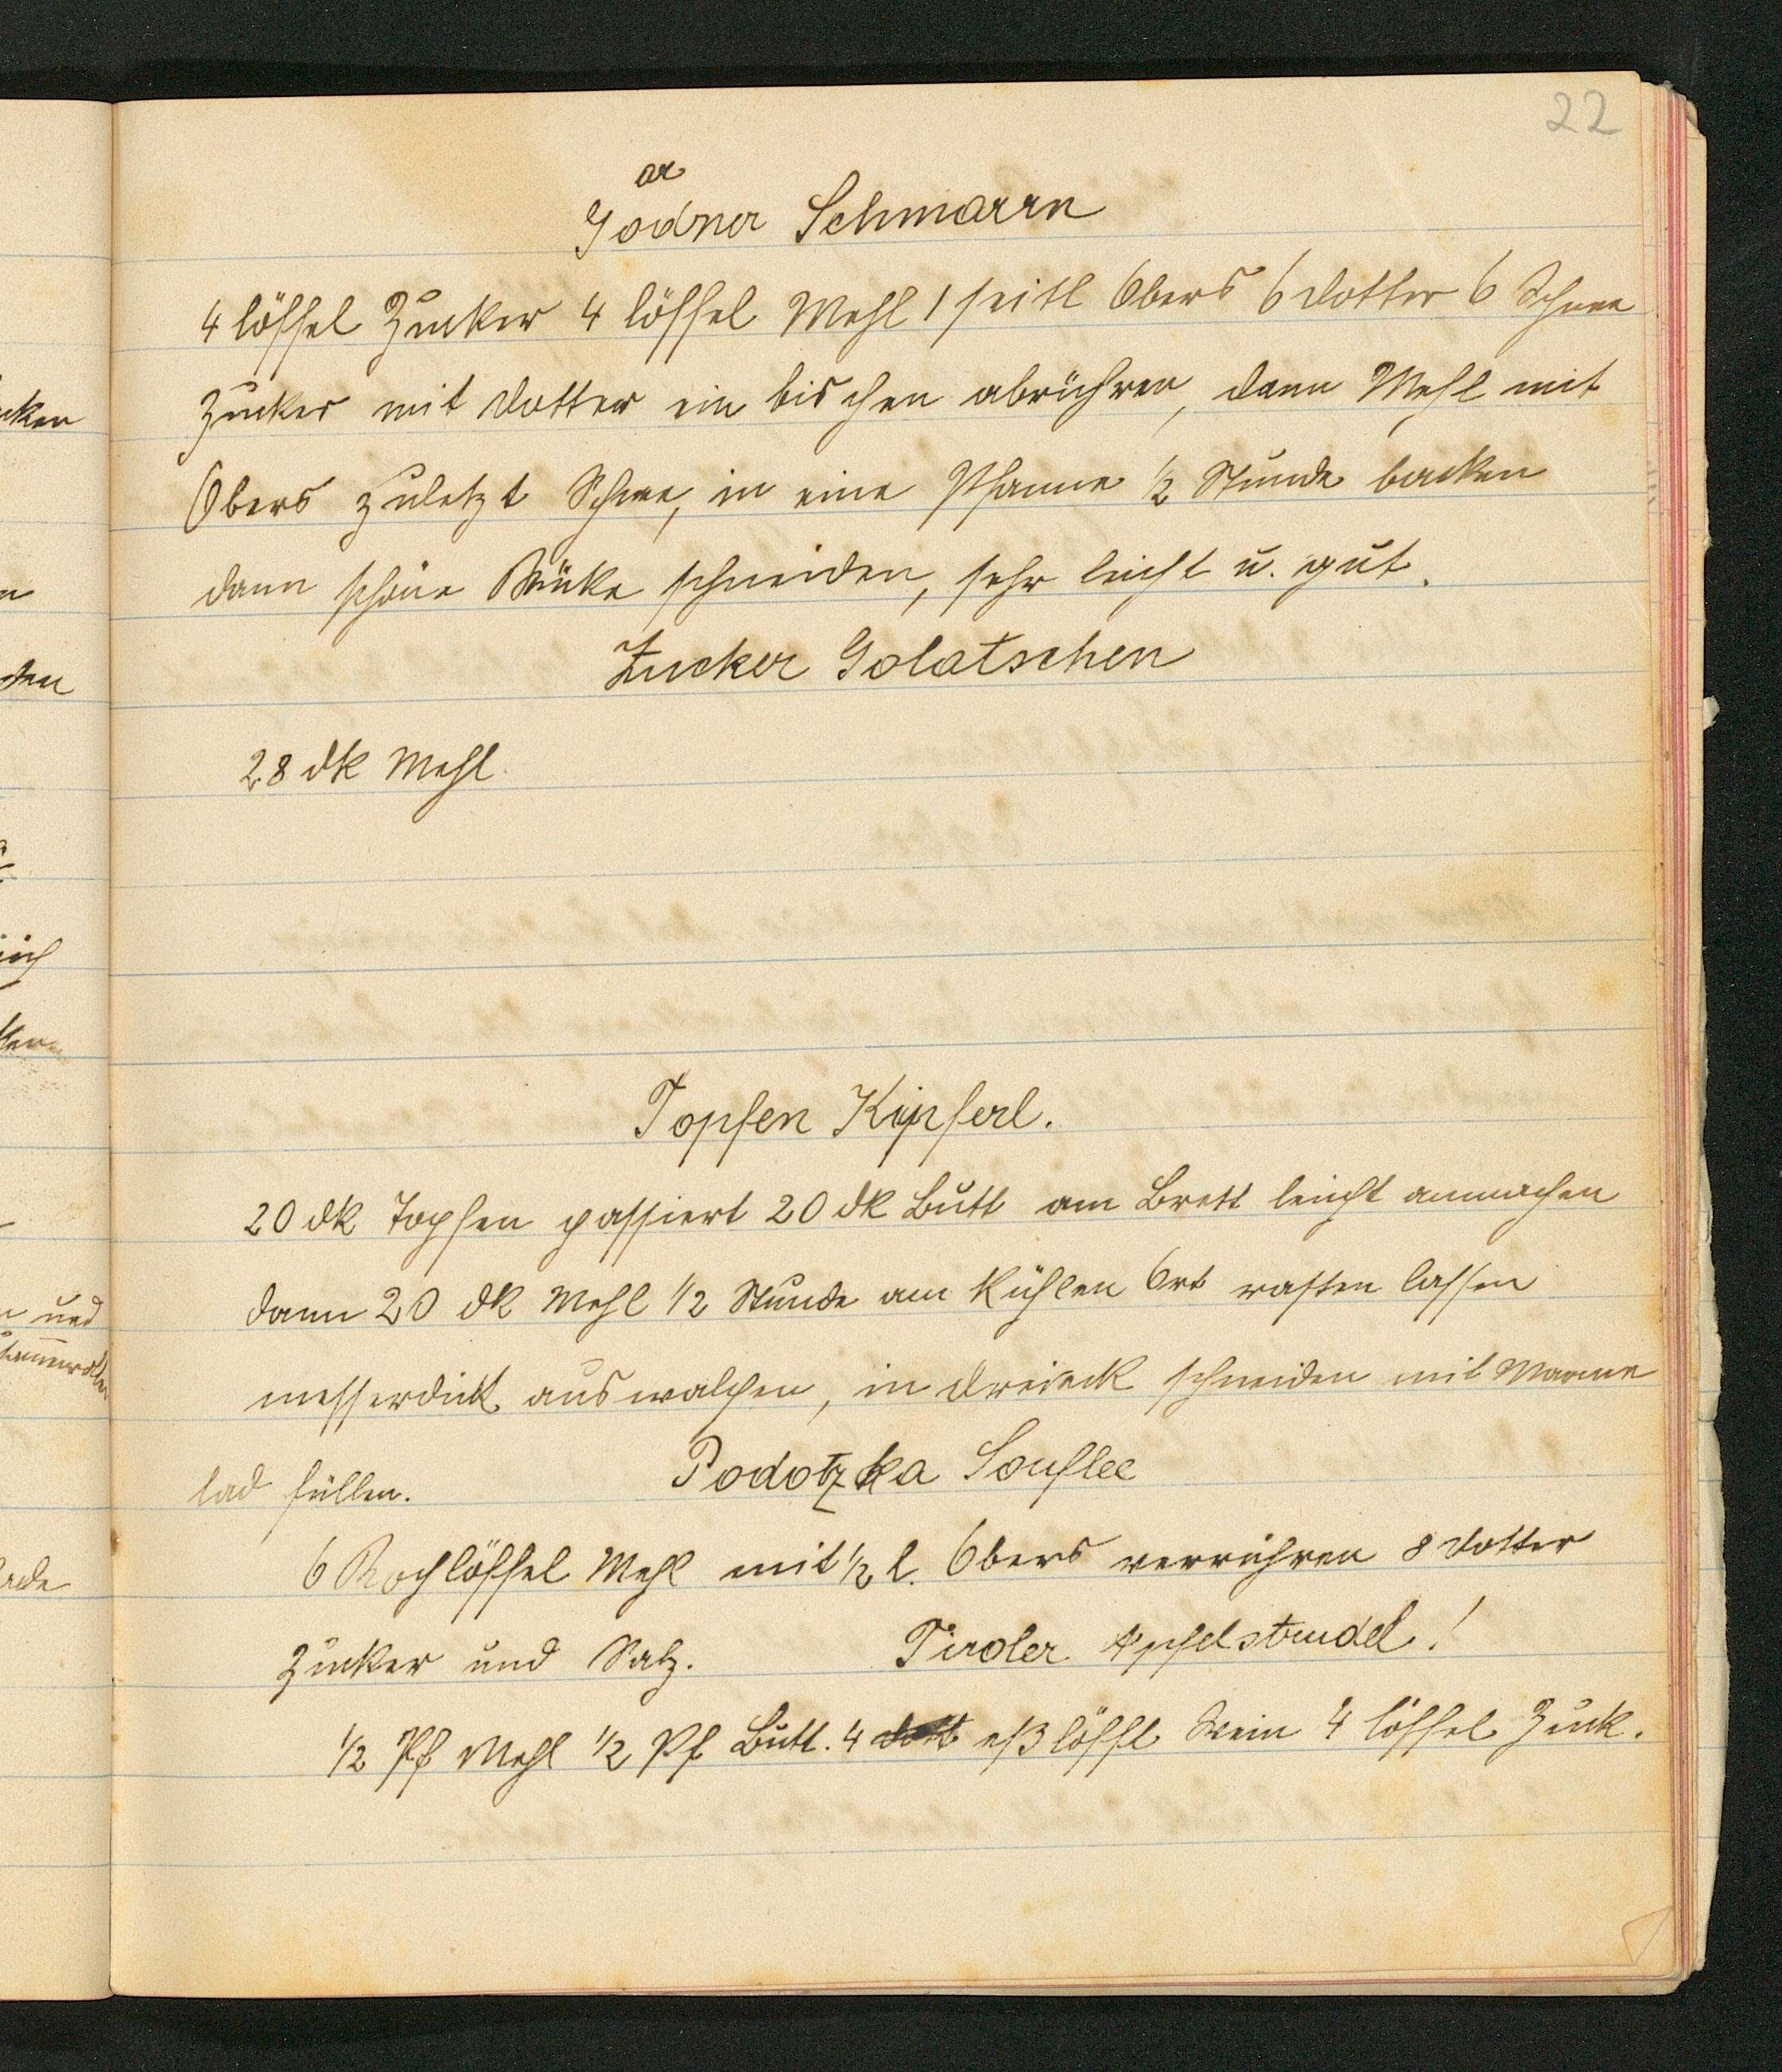 22
ar
Godner Schmarrn
4 löffel Zucker 4 löffel Mehl 1 seitl Obers 6 Dotter 6 Schnee
Zucker mit Dotter ein bischen abrühren, dann Mehl mit
Obers zuletzt Schnee, in eine Pfanne ½ Stunde backen
dann schöne Stücke schneiden, sehr leicht u. gut.
Zucker Golatschen
28 dk Mehl.
Topfen Kipferl.
20 dk Topfen passiert 20 dk Butt am Brett leicht anmachen
dann 20 dk Mehl ½ Stunde am kühlen Ort rasten lassen
messerdick auswalchen, in Dreieck schneiden mit Marme
lad füllen.
Podotzka Souflee
6 Kochlöffel Mehl mit ½ l. Obers verrühren 8 Dotter
Zucker und Salz.
Tiroler Apfelstrudel!
½ Pf Mehl ½ Pf Butt. 4 eßlöffl Wein 4 löffel Zuck.